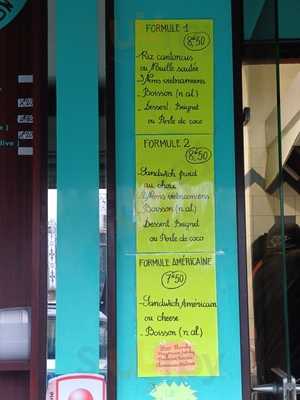 FORMULE 1
8€50
-Riz cantonais
ou Nouille sautée
-Nems vietnamiens
-Boisson (n al)
-Dessert Beignet
ou Perle de coco
FORMULE 2
8€50
-Sandwich froid
au choix
-Nems vietnamiens
-Boisson (n al)
Dessert Beignet
ou Perle de coco
FORMULE AMÉRICAINE
7€50
-Sandwich Américain
ou cheese
-Boisson (n al)